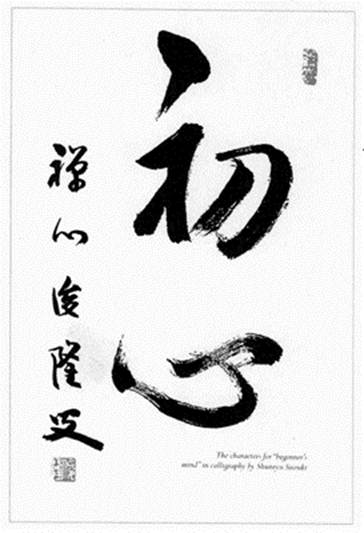 初心
禅心俊隆
The characters for "beginner's
mind" in calligraphy by Shunryu Suzuki